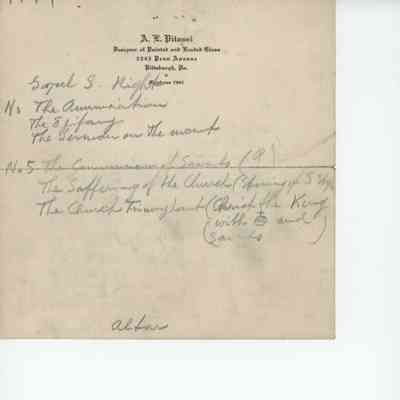 A. L. Pitassi
Designer of Painted and Leaded Glass
3343 Penn Avenue
Pittsburgh, Pa.
Gospel S. Right
No The Annunciation
The Epifany
The Sermon on the mount
No 5 The Communion of Saints (9)
The Suffering of the Church (Stoning of S
The Church Triumphant (Christ the King
(with and
Saints )
Altar